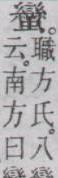 蠻。
職方氏。八
云。南方曰